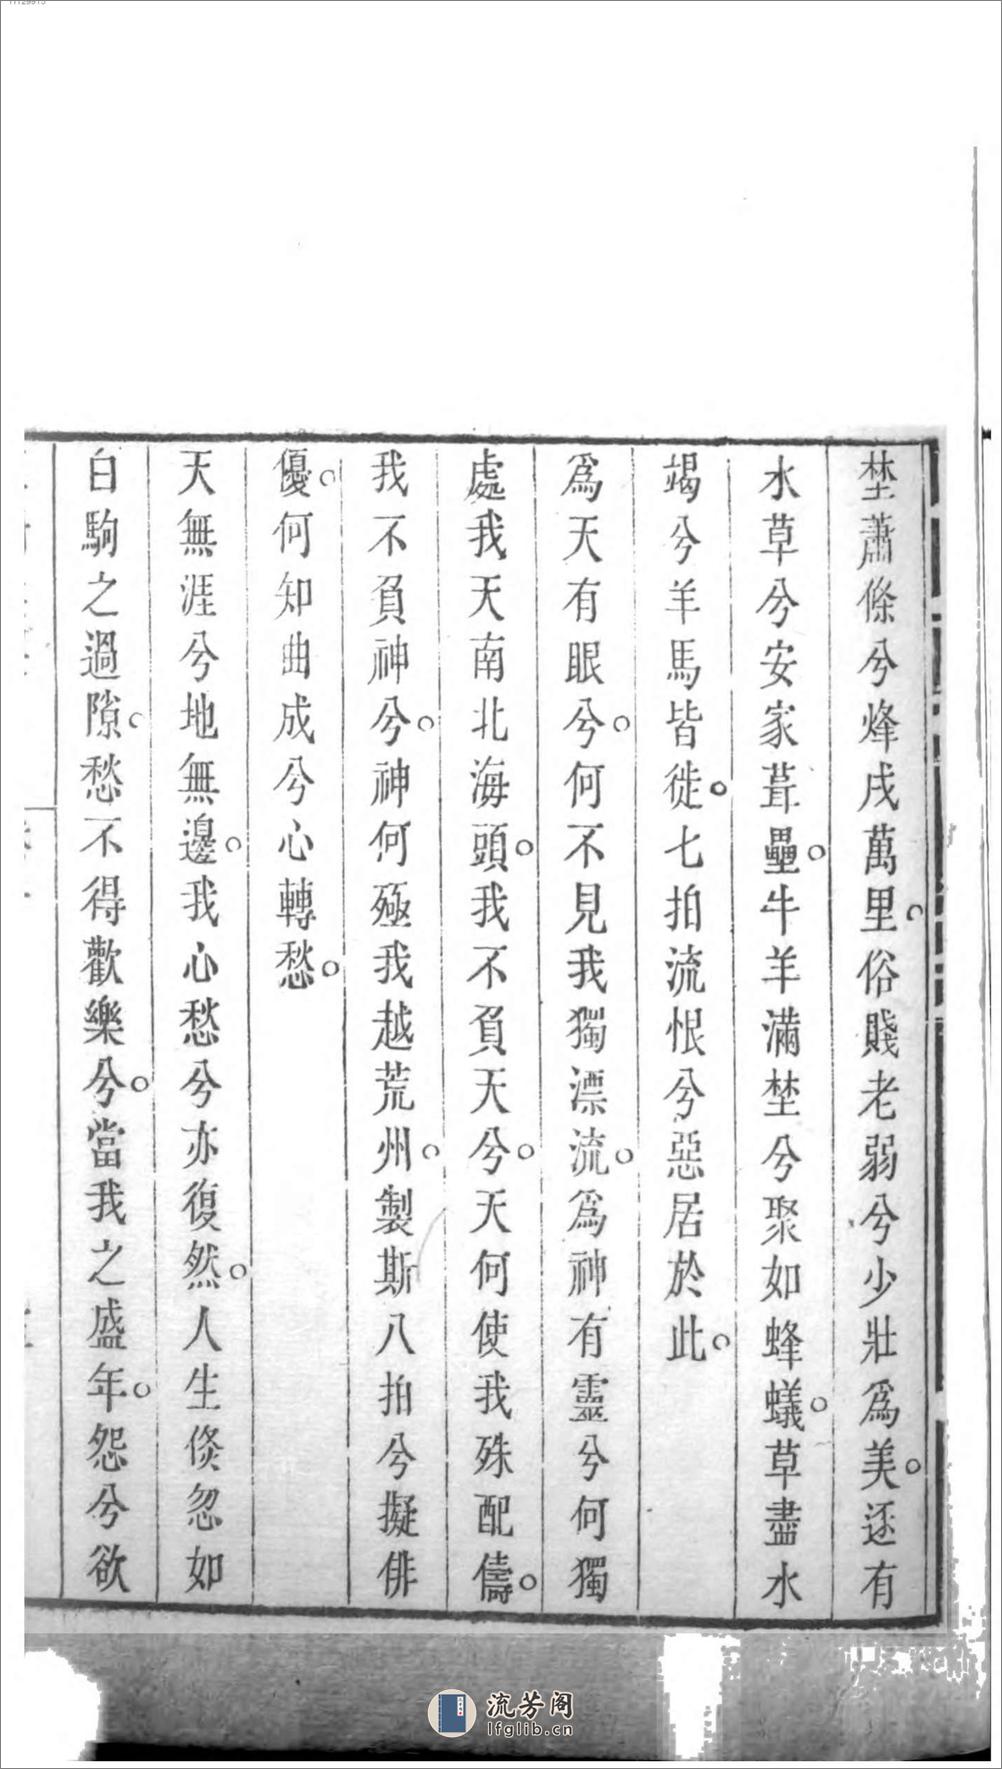 埜蕭條兮烽戍萬里。俗賤老弱兮少壯爲美。逐有
水草兮安家葺壘。牛羊滿埜兮聚如蜂蟻。草盡水
竭兮羊馬皆徙。七拍流恨兮惡居於此。
爲天有眼兮。何不見我獨漂流。爲神有靈兮何獨
處我天南北海頭。我不負天兮。天何使我殊配儔。
我不負神兮。神何殛我越荒州。製斯八拍兮擬俳
優。何知曲成兮心轉愁。
天無涯兮地無邊。我心愁兮亦復然。人生倐忽如
白駒之過隙。愁不得歡樂兮。當我之盛年。怨兮欲
流芳阁
lfglib.cn